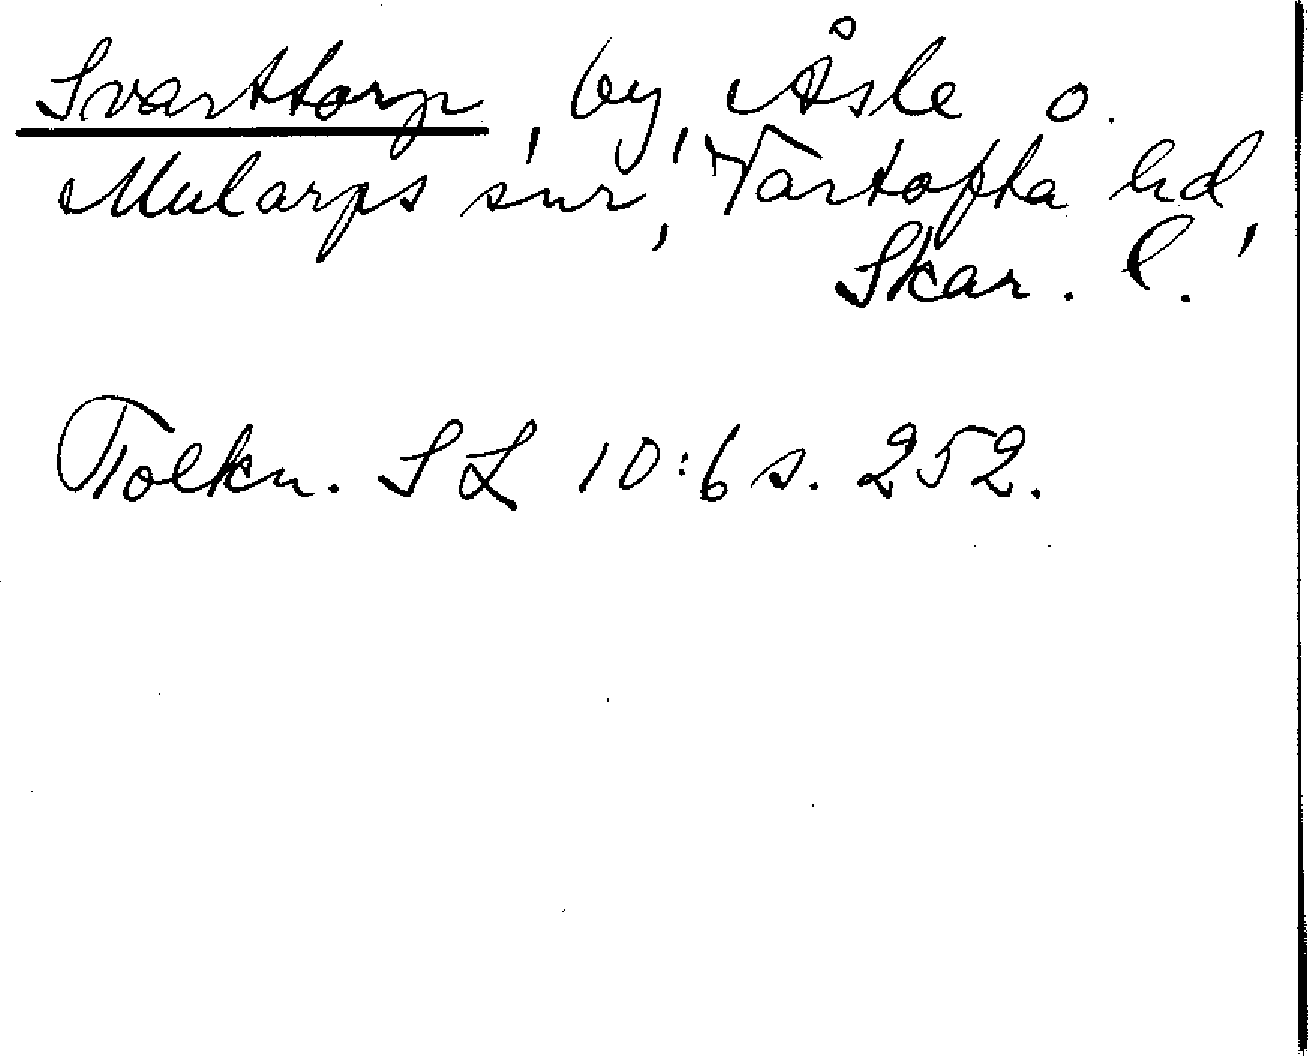 Svarttorp, by, Åsle o.
Mularps snr, Vartofta hd,
Skar. l.
Tolkn. SL 10:6 s. 252.